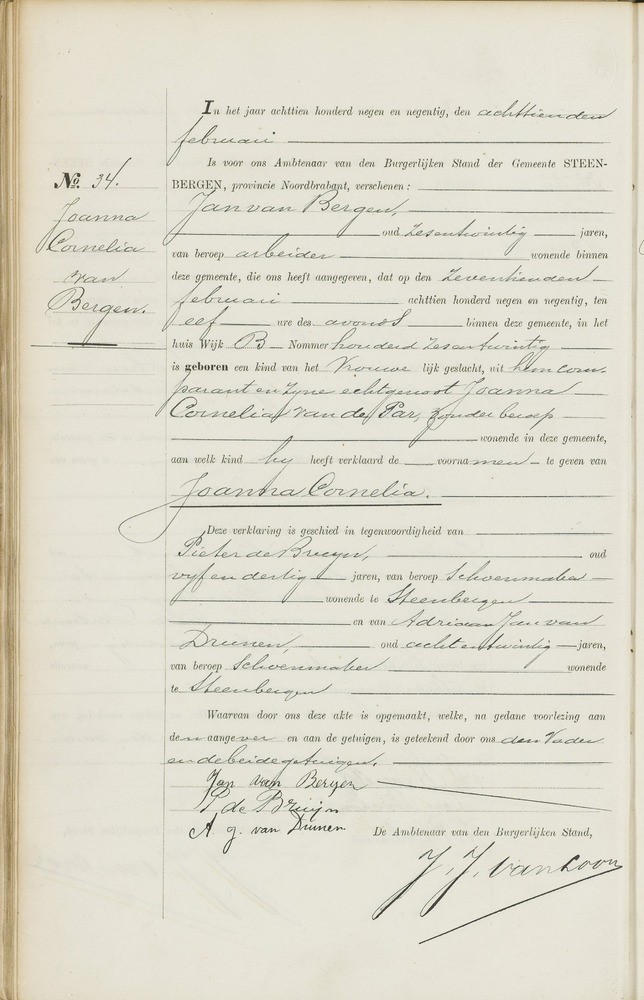 In het jaar achttien honderd negen en negentig, den achttienden
februari
Is voor ons Ambtenaar van den Burgerlijken Stand der Gemeente STEEN-
BERGEN, provincie Noordbrabant, verschenen:
Jan van Bergen,
oud zesentwintig jaren,
van beroep arbeider wonende binnen
deze gemeente, die ons heeft aangegeven, dat op den zeventienden
februari achttien honderd negen en negentig, ten
elf ure des avonds binnen deze gemeente, in het
huis Wijk B Nommer honderd zesentwintig
is geboren een kind van het Vrouwe lijk geslacht, uit hem com-
parant en zyne echtgenoot Joanna
Cornelia van der Par, zonder beroep
wonende in deze gemeente,
aan welk kind hy heeft verklaard de voornamen te geven van
Joanna Cornelia.
Deze verklaring is geschied in tegenwoordigheid van
Pieter de Bruyn, oud
vyf en dertig jaren, van beroep Schoenmaker
wonende te Steenbergen
en van Adriaan Jan van
Drunen, oud achtentwintig jaren,
van beroep Schoenmaker wonende
te Steenbergen
Waarvan door ons deze akte is opgemaakt, welke, na gedane voorlezing aan
den aangever en aan de getuigen, is geteekend door ons den Vader
en de beide getuigen.
Jan van Bergen
P de Bruijn
A. J. van Drunen
De Ambtenaar van den Burgerlijken Stand,
J. J. van Loon
No. 34.
Joanna
Cornelia
van
Bergen.